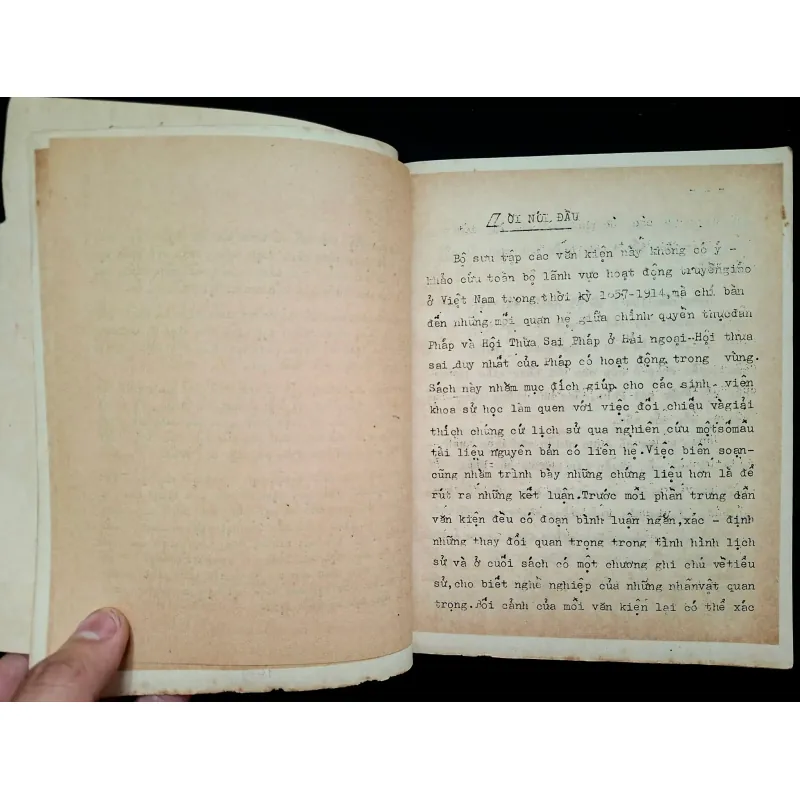 LỜI NÓI ĐẦU
Bộ sưu tập các văn kiện này không có ý -
khảo cứu toàn bộ lãnh vực hoạt động truyềngiáo
ở Việt Nam trong thời kỳ 1657-1914,mà chỉ bàn
đến những mối quan hệ giữa chính quyền thựcdân
Pháp và Hội Thừa Sai Pháp ở Hải ngoại-Hội thừa
sai duy nhất của Pháp có hoạt động trong vùng.
Sách này nhằm mục đích giúp cho các sinh - viên
khoa sử học làm quen với việc đối chiếu vàgiải
thích chứng cứ lịch sử qua nghiên cứu mộtsốmẫu
tài liệu nguyên bản có liên hệ.Việc biên soạn-
cũng nhằm trình bày những chứng liệu hơn là để
rút ra những kết luận.Trước mỗi phần trưng dẫn
văn kiện đều có đoạn bình luận ngắn,xác - định
những thay đổi quan trọng trong tình hình lịch
sử và ở cuối sách có một chương ghi chú vềtiểu
sử,cho biết nghề nghiệp của những nhânvật quan
trọng.Bối cảnh của mỗi văn kiện lại có thể xác